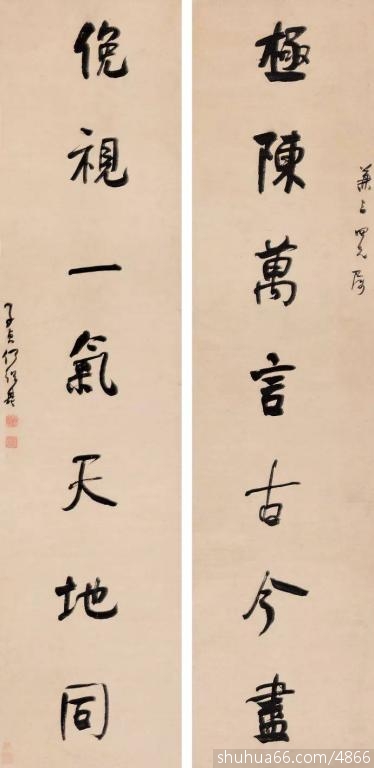 四兄屬
極陳萬言古今盡
俛視一氣天地同
子貞何紹基
shuhua66.com/4866